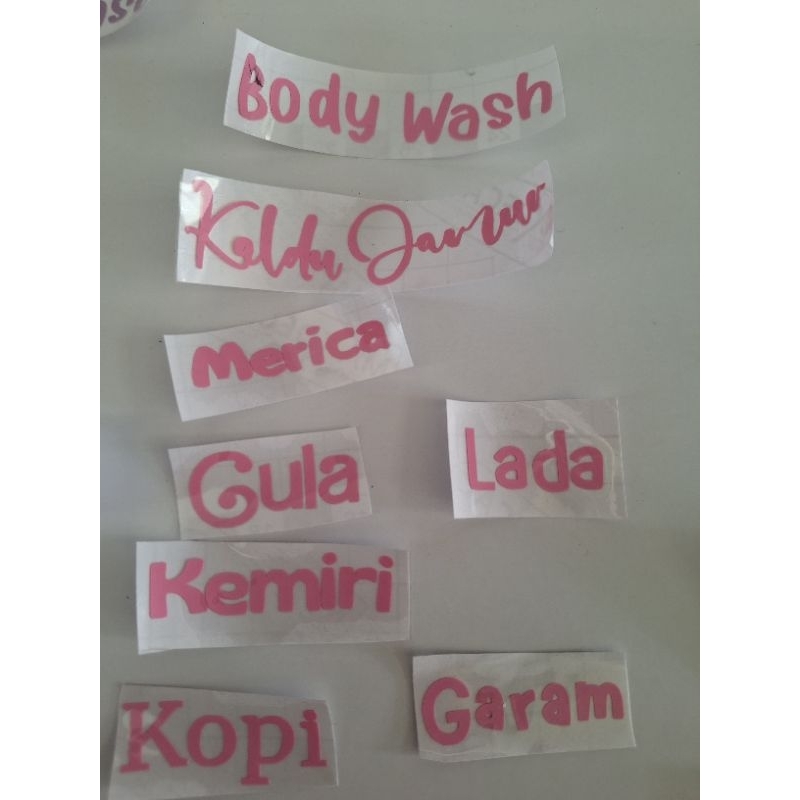 Body Wash
Kaldu Jamur
Merica
Gula
Lada
Kemiri
Kopi
Garam